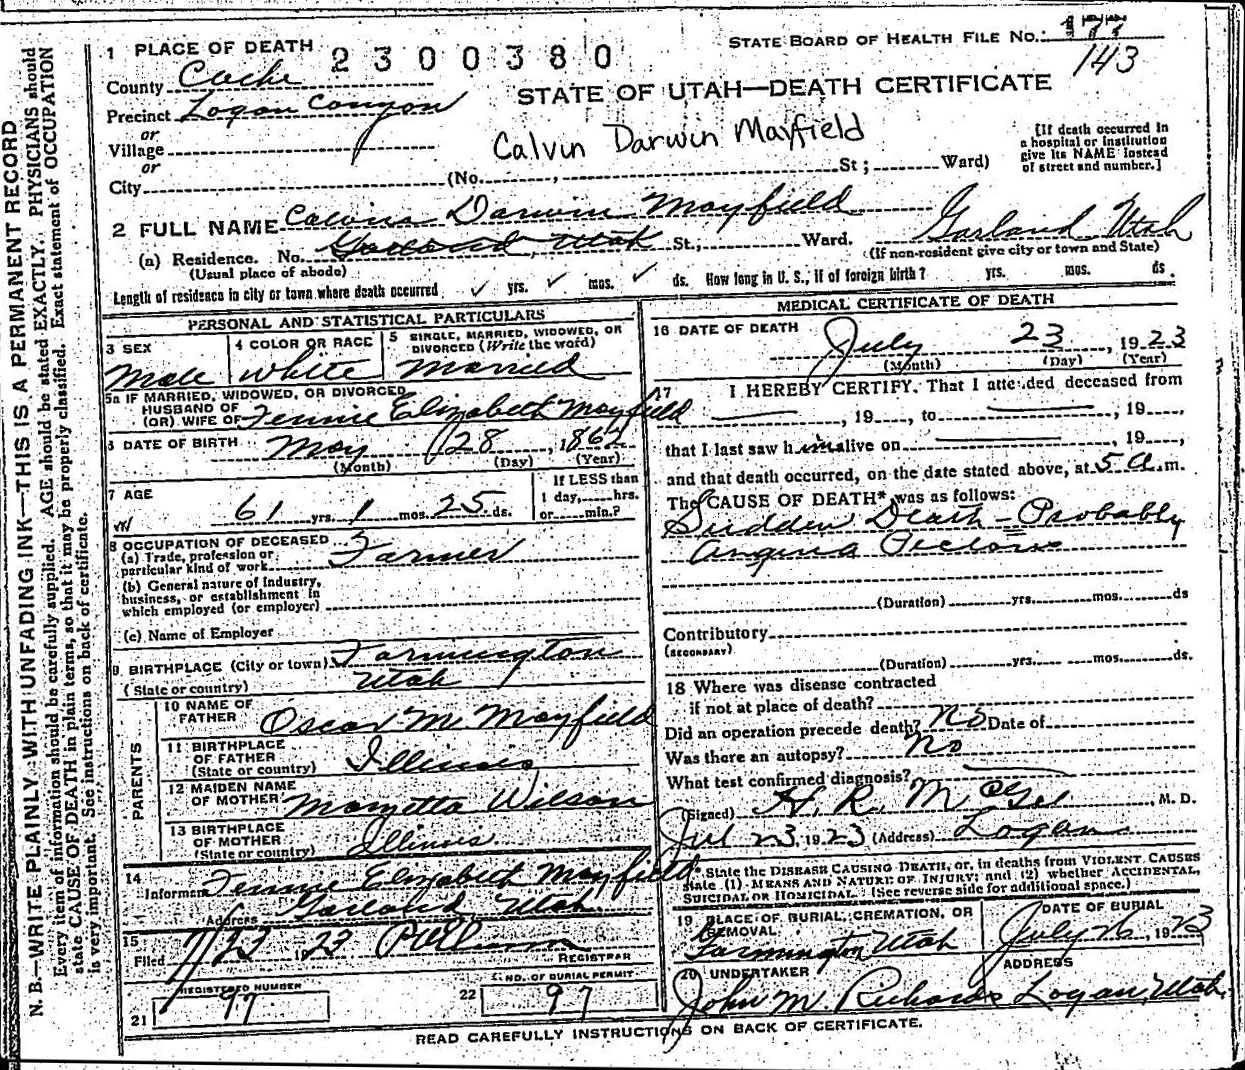 N. B.—WRITE PLAINLY WITH UNFADING INK—THIS IS A PERMANENT RECORD
Every item of information should be carefully supplied. AGE should be stated EXACTLY. PHYSICIANS should
state CAUSE OF DEATH in plain terms, so that it may be properly classified. Exact statement of OCCUPATION
is very important. See instructions on back of certificate.
1 PLACE OF DEATH 2300380 STATE BOARD OF HEALTH FILE No. 177
143
County Cache
STATE OF UTAH—DEATH CERTIFICATE
Precinct Logan Canyon
or
Village
Calvin Darwin Mayfield
[If death occurred in
a hospital or institution
give its NAME instead
of street and number.]
or
City (No. , St; Ward)
2 FULL NAME Calvin Darwin Mayfield
(a) Residence. No. Garland, Utah St; Ward. Garland Utah
(Usual place of abode) (If non-resident give city or town and State)
Length of residence in city or town where death occurred ✓ yrs. ✓ mos. ✓ ds. How long in U. S., if of foreign birth? yrs. mos. ds.
PERSONAL AND STATISTICAL PARTICULARS
3 SEX
Male
4 COLOR OR RACE
White
5 SINGLE, MARRIED, WIDOWED, OR
DIVORCED (Write the word)
Married
5a IF MARRIED, WIDOWED, OR DIVORCED
HUSBAND OF
(OR) WIFE OF Jennie Elizabeth Mayfield
6 DATE OF BIRTH May 28, 1862
(Month) (Day) (Year)
7 AGE
61 yrs. 1 mos. 25 ds.
If LESS than
1 day, hrs.
or min.?
8 OCCUPATION OF DECEASED
(a) Trade, profession or
particular kind of work Farmer
(b) General nature of industry,
business, or establishment in
which employed (or employer)
(c) Name of Employer
9 BIRTHPLACE (City or town) Farmington
(State or country) Utah
PARENTS
10 NAME OF
FATHER Oscar M. Mayfield
11 BIRTHPLACE
OF FATHER
(State or country) Illinois
12 MAIDEN NAME
OF MOTHER Margetta Wilson
13 BIRTHPLACE
OF MOTHER
(State or country) Illinois
14
Informant Jennie Elizabeth Mayfield
Address Garland, Utah
15
Filed 7/23 1923
REGISTRAR
REGISTERED NUMBER
21 97
NO. OF BURIAL PERMIT
22 97
MEDICAL CERTIFICATE OF DEATH
16 DATE OF DEATH
July 23, 1923
(Month) (Day) (Year)
17 I HEREBY CERTIFY. That I attended deceased from
, 19 , to , 19 ,
that I last saw him alive on , 19 ,
and that death occurred, on the date stated above, at 5 a.m.
The CAUSE OF DEATH* was as follows:
Sudden Death - Probably
Angina Pectoris
(Duration) yrs. mos. ds
Contributory
(SECONDARY)
(Duration) yrs. mos. ds.
18 Where was disease contracted
if not at place of death?
Did an operation precede death? No Date of
Was there an autopsy? No
What test confirmed diagnosis?
(Signed) H. R. McGee M. D.
Jul 23, 1923 (Address) Logan
*State the DISEASE CAUSING DEATH, or, in deaths from VIOLENT CAUSES
state (1) MEANS AND NATURE OF INJURY; and (2) whether ACCIDENTAL,
SUICIDAL OR HOMICIDAL. [See reverse side for additional space.]
19 PLACE OF BURIAL, CREMATION, OR
REMOVAL
Farmington Utah
DATE OF BURIAL
July 26, 1923
20 UNDERTAKER
John M. Richards
ADDRESS
Logan, Utah.
READ CAREFULLY INSTRUCTIONS ON BACK OF CERTIFICATE.